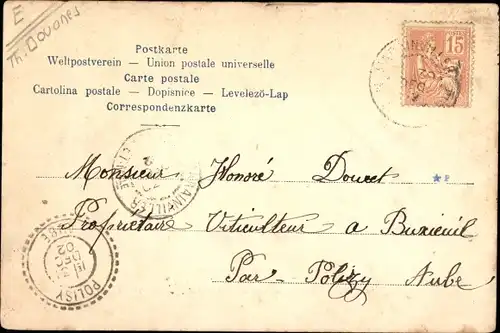 E
Th. Douanes
Postkarte
Weltpostverein – Union postale universelle
Carte postale
Cartolina postale – Dopisnice – Levelezö-Lap
Correspondenzkarte
POSTES
15
Monsieur Honoré Doucet
Propriétaire Viticulteur à Buxieuil
Par Polizy Aube
31
DEC
02
POLISY